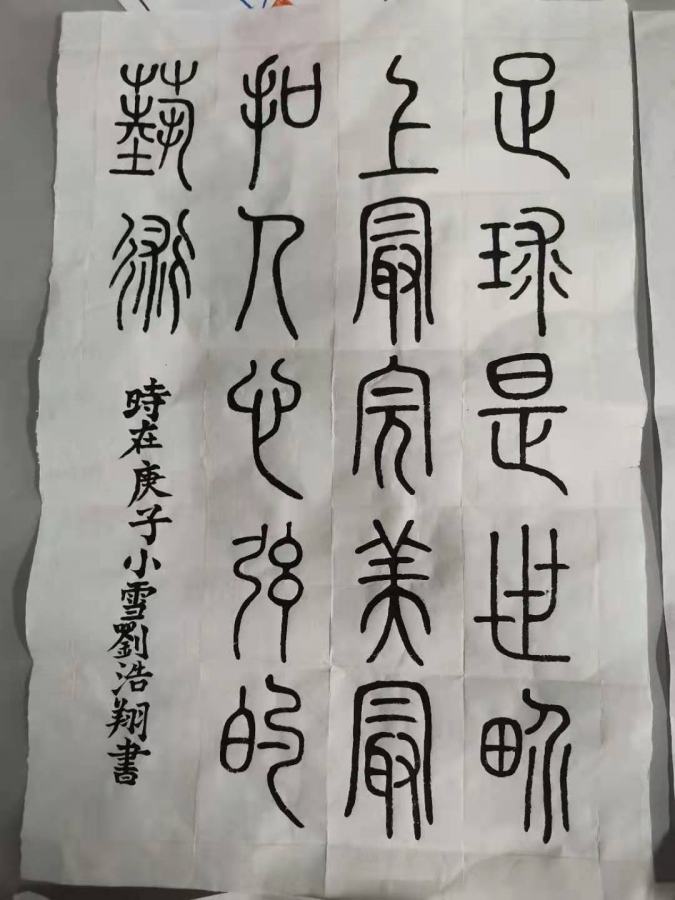 足球是世界
上最完美最
扣人心弦的
藝術
時在庚子小雪劉浩翔書